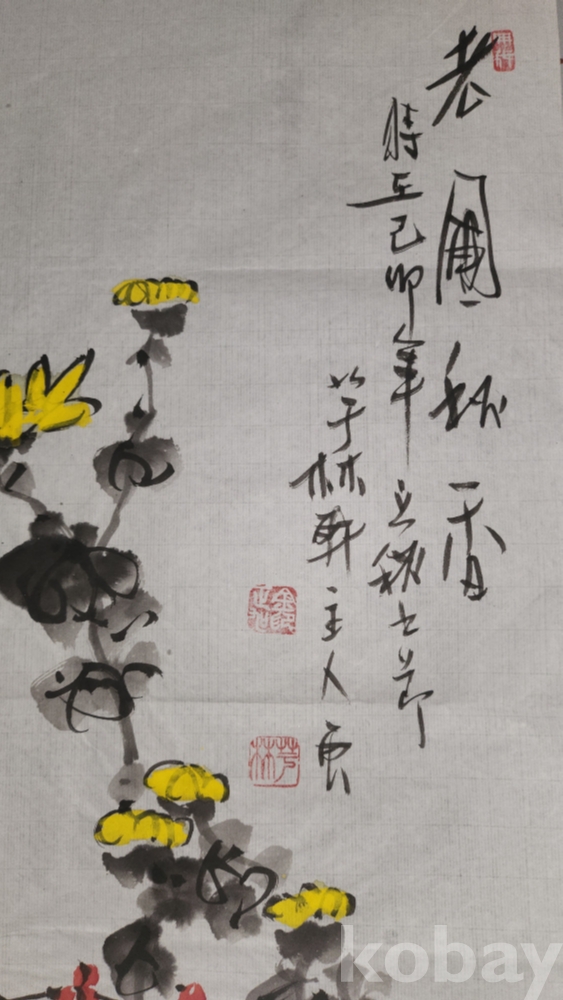 老圃秋香
時在己卯年立秋之节
林軒主人
kobay